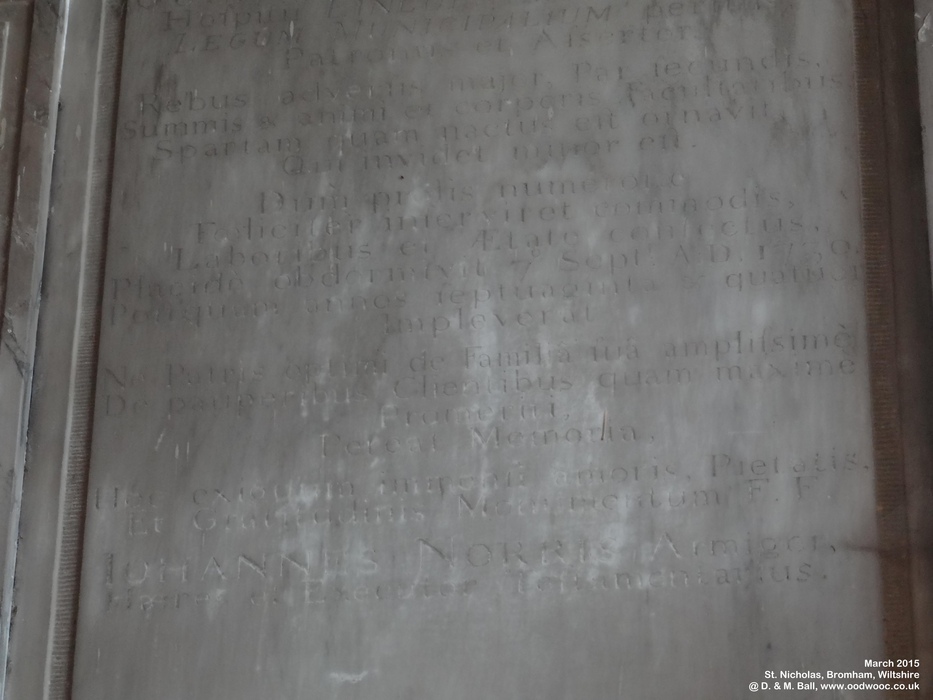 Hospitii LINCOLN
LEGUM MUNICIPALIUM peritus
Patronus et Assertor.
Rebus adversis major, Par secundis,
Summis & animi et corporis Facultatibus
Spartam quam nactus est ornavit,
Qui invidet minor est.
Dum prolis numerosæ
Feliciter inserviret commodis,
Laboribus et Ætate confectus,
Placide obdormivit 7º Sept. A.D. 17 0.
Postquam annos septuaginta & quatuor
impleverat
Ne Patris optimi de Familiâ suâ amplissimè
De pauperibus Clientibus quam maximè
Promeriti,
Pereat Memoria,
Hoc exiguum immensi amoris, Pietatis,
Et Gratitudinis Monumentum F. F.
IOHANNES NORRIS Armiger,
Hæres et Executor Testamentarius.
March 2015
St. Nicholas, Bromham, Wiltshire
@ D. & M. Ball, www.oodwooc.co.uk